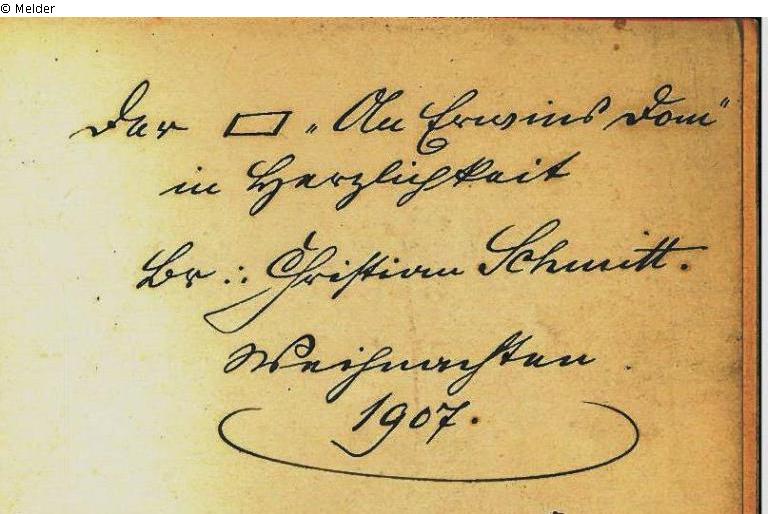 © Melder
Der ▭ „An Erwins Dom"
in Herzlichkeit
Br ∴ Christian Schmitt.
Weihnachten
1907.